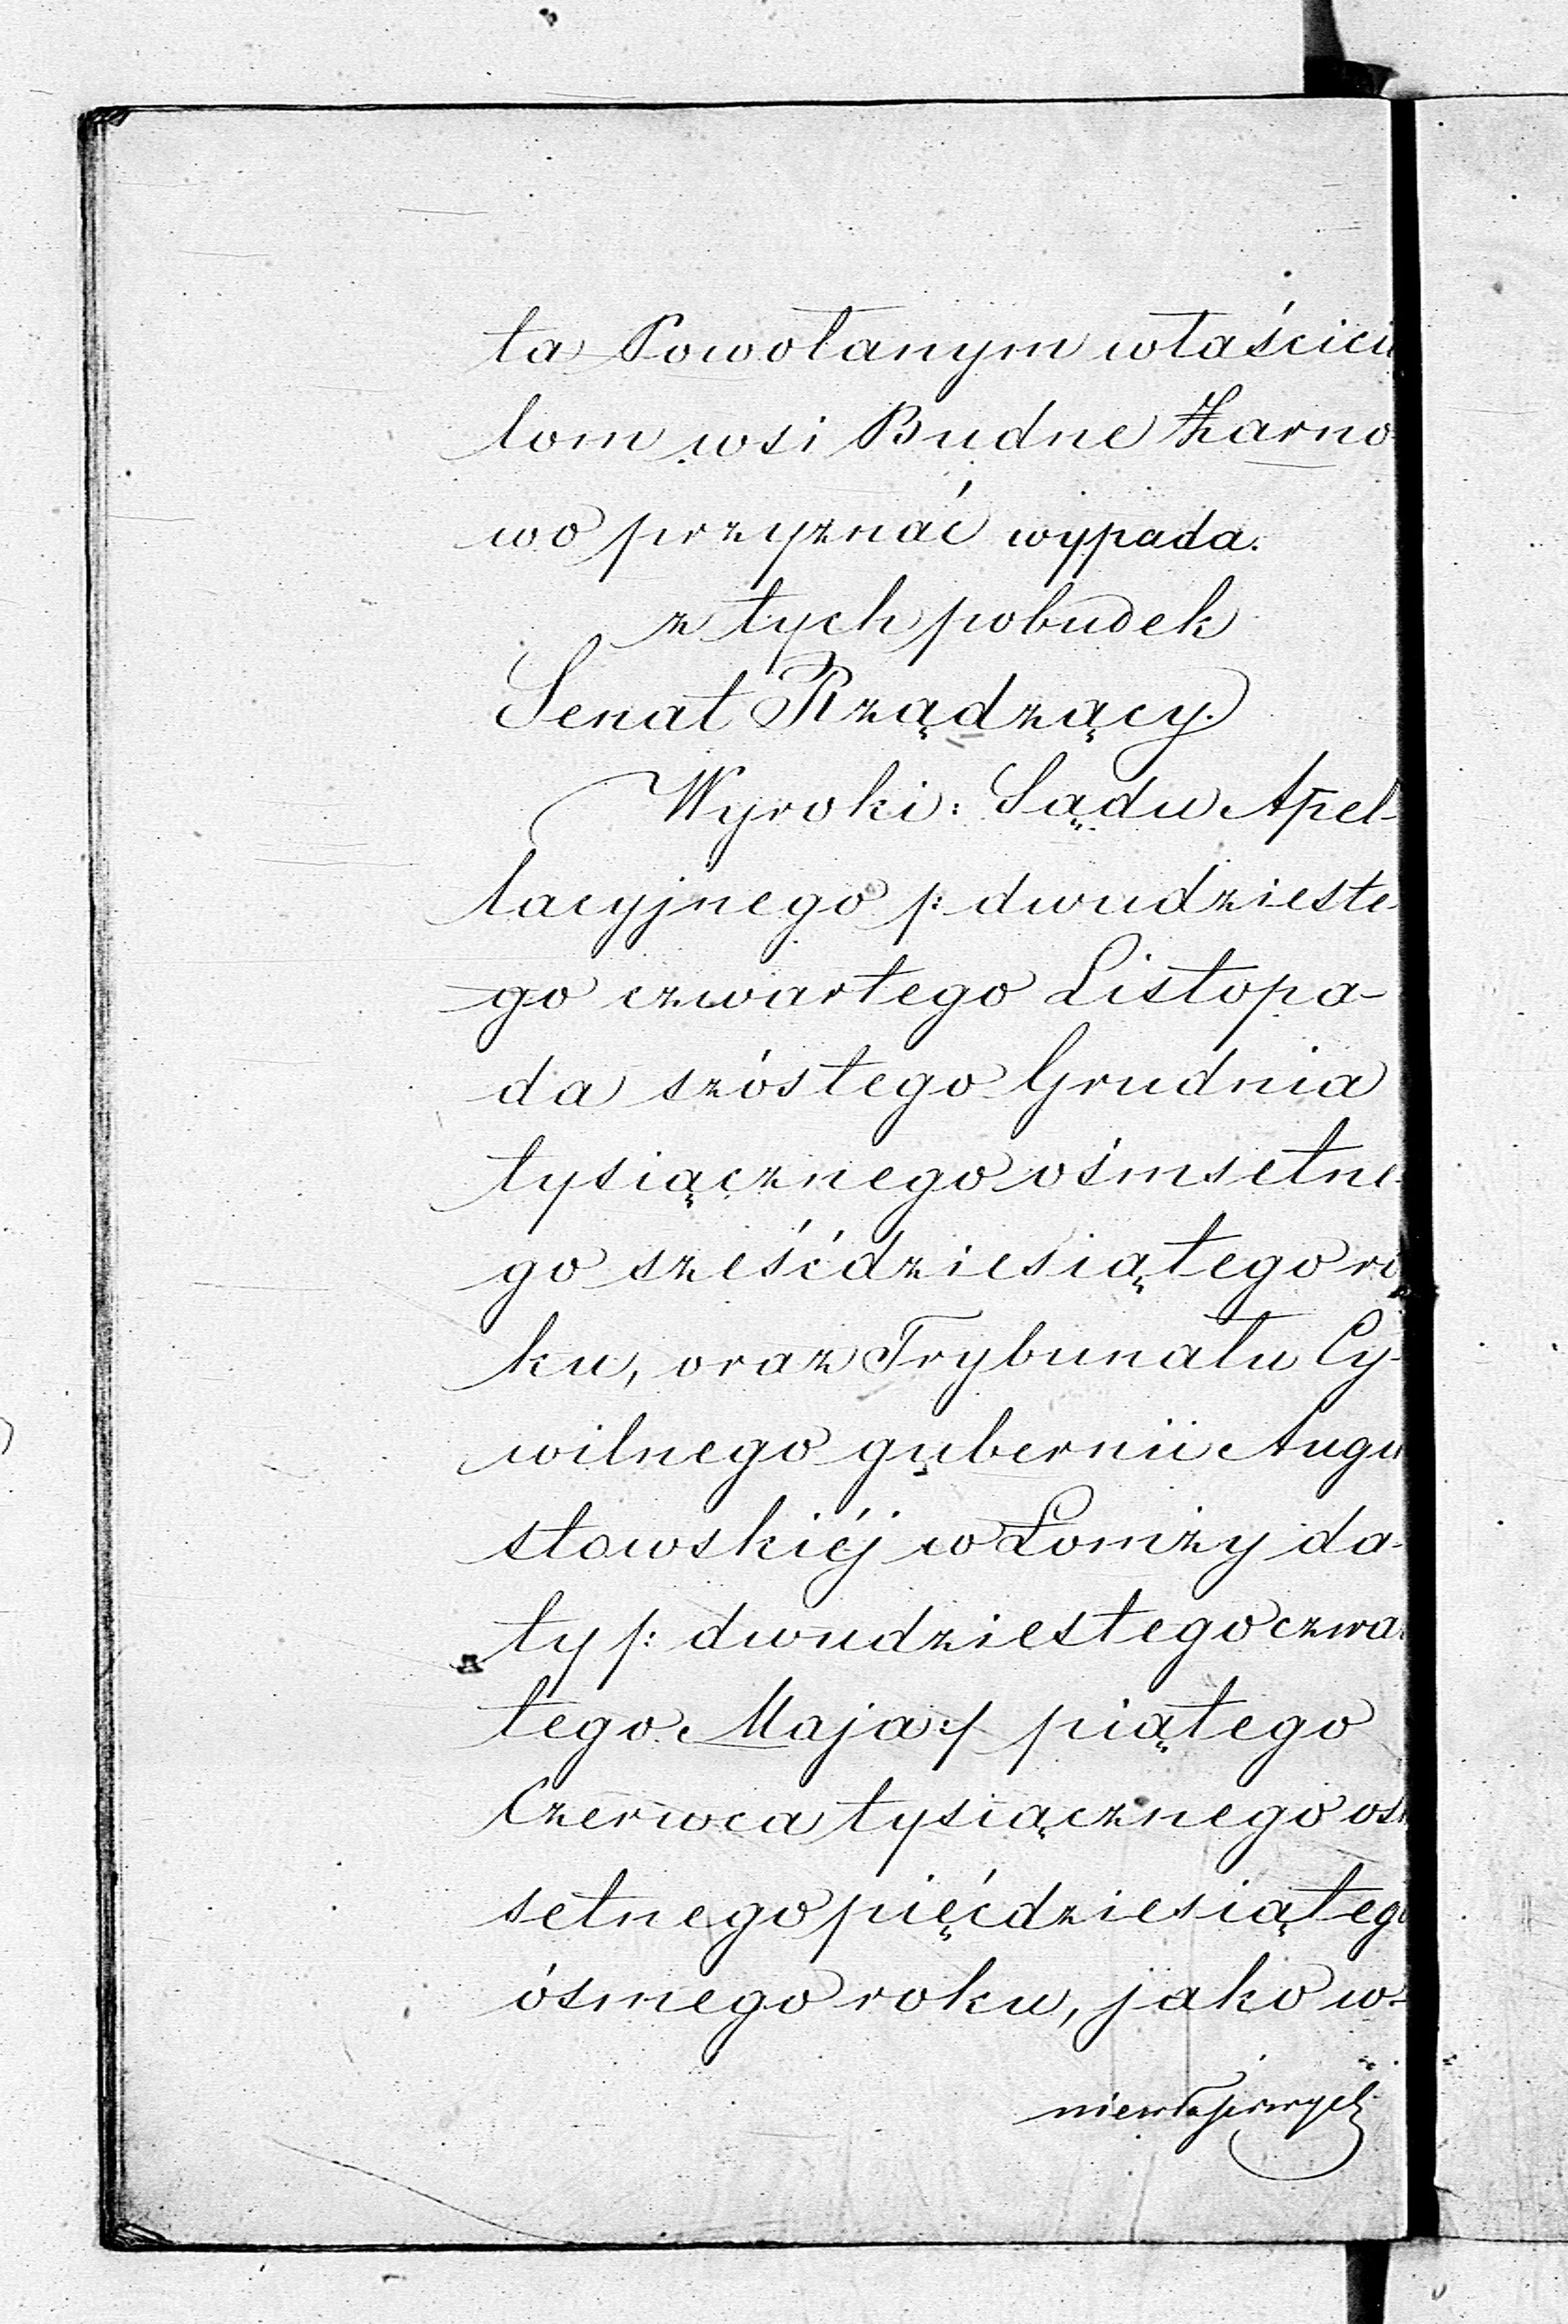 ta Powołanym właścicie
lom wsi Budne Żarno
wo przyznać wypada.
z tych pobudek
Senat Rządzący.
Wyroki: Sądu Apel-
lacyjnego /: dwudzieste-
go czwartego Listopa-
da szóstego Grudnia
tysiącznego ośmsetne-
go sześćdziesiątego ro
ku, oraz Trybunału Cy-
wilnego gubernii Augu
stowskiéj w Łomży da-
ty /: dwudziestego czwar
tego Maja :/ piątego
Czerwca tysiącznego ośm
setnego pięćdziesiątego
ósmego roku, jako w-